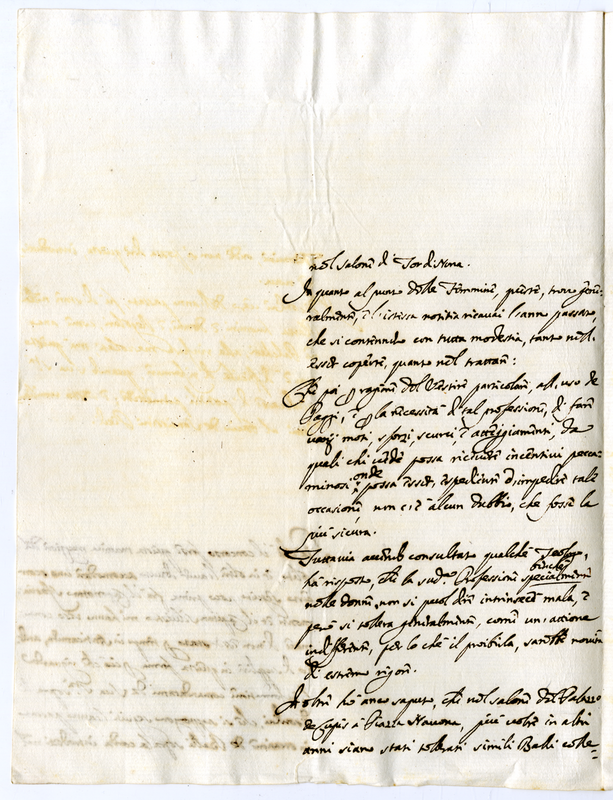 nel salone di Tordinona.
In quanto al ... delle Femmine, ... trovo gene-
ralmente, è l'istessa notitia ricavai l'anno passato,
che si contennero con tutta modestia, tanto nell'
esser coperte, quanto nel trattare:
Che poi ragione del Vestire particolare, all'uso de
Paggi, è la necessità di tal professione, di fare
varij moti, sforzi, scurci, e atteggiamenti, da
quali chi vede possa ricevere incentivi pecca-
minosi onde possa esser espediente d'impedire tale
occasione non c'è alcun dubbio, che fosse la
più sicura.
Tuttavia avendo consultato qualche Teologo,
ha risposto, che la sud.ª Professione specialmente
nelle donne, non si puol dire intrinsece mala, e
però si tollera generalmente, come un'azione
indifferente, per lo che il proibirla, sarebbe novità
di estremo rigore.
Inoltre hò anco saputo, che nel salone del Palazzo
de Cupis à Piazza Navona, più volte in altri
anni siano stati tollerati simili Balli colle-